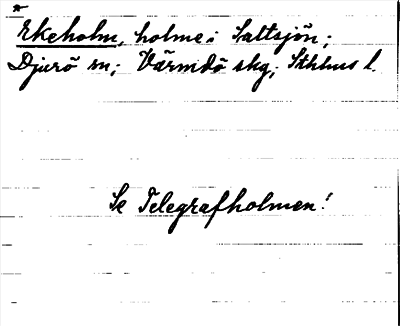 Ekeholm, holme i Saltsjön;
Djurö sn; Värmdö skg; Sthlms l.
Se Telegrafholmen!